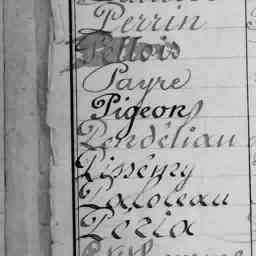 Perrin
Pellois
Payre
Pigeon
Pendéliau
Pissény
Paloteau
Peria